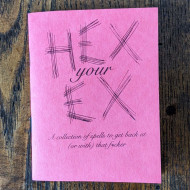 HEX
your
EX
A collection of spells to get back at
(or with) that fucker